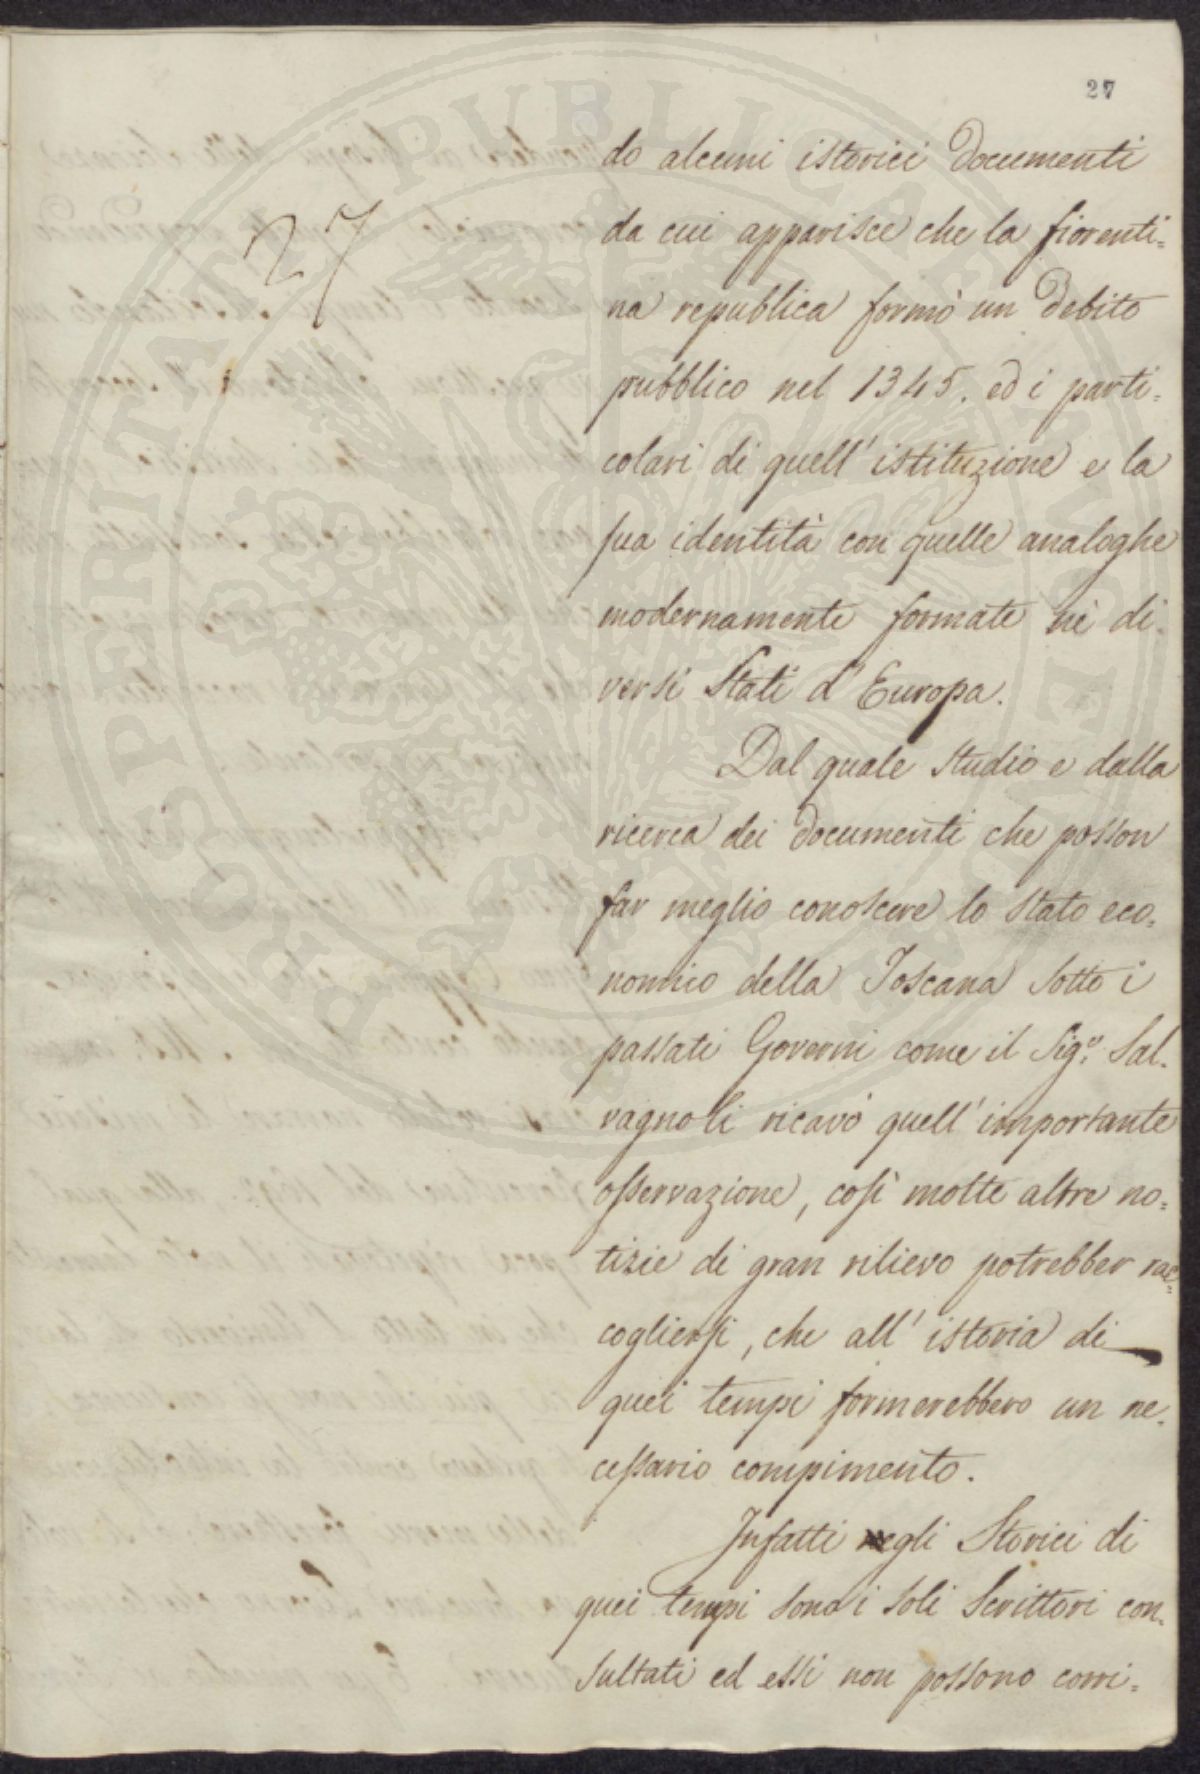 27
27
do alcuni istorici documenti
da cui apparisce che la fiorenti=
na republica formò un debito
pubblico nel 1345. ed i parti=
colari di quell' istituzione e la
sua identità con quelle analoghe
modernamente formate nè di=
versi Stati d' Europa.
Dal quale studio e dalla
ricerca dei documenti che posson
far meglio conoscere lo stato eco=
nomico della Toscana sotto i
passati Governi come il Sig.r Sal=
vagnoli ricavò quell' importante
osservazione, così molte altre no=
tizie di gran rilievo potrebber rac=
cogliersi, che all' istoria di
quei tempi formerebbero un ne=
cessario compimento.
Infatti negli Storici di
quei tempi sono i soli Scrittori con=
sultati ed essi non possono corri=
PROSPERITATI PUBLICAE AUGENDAE